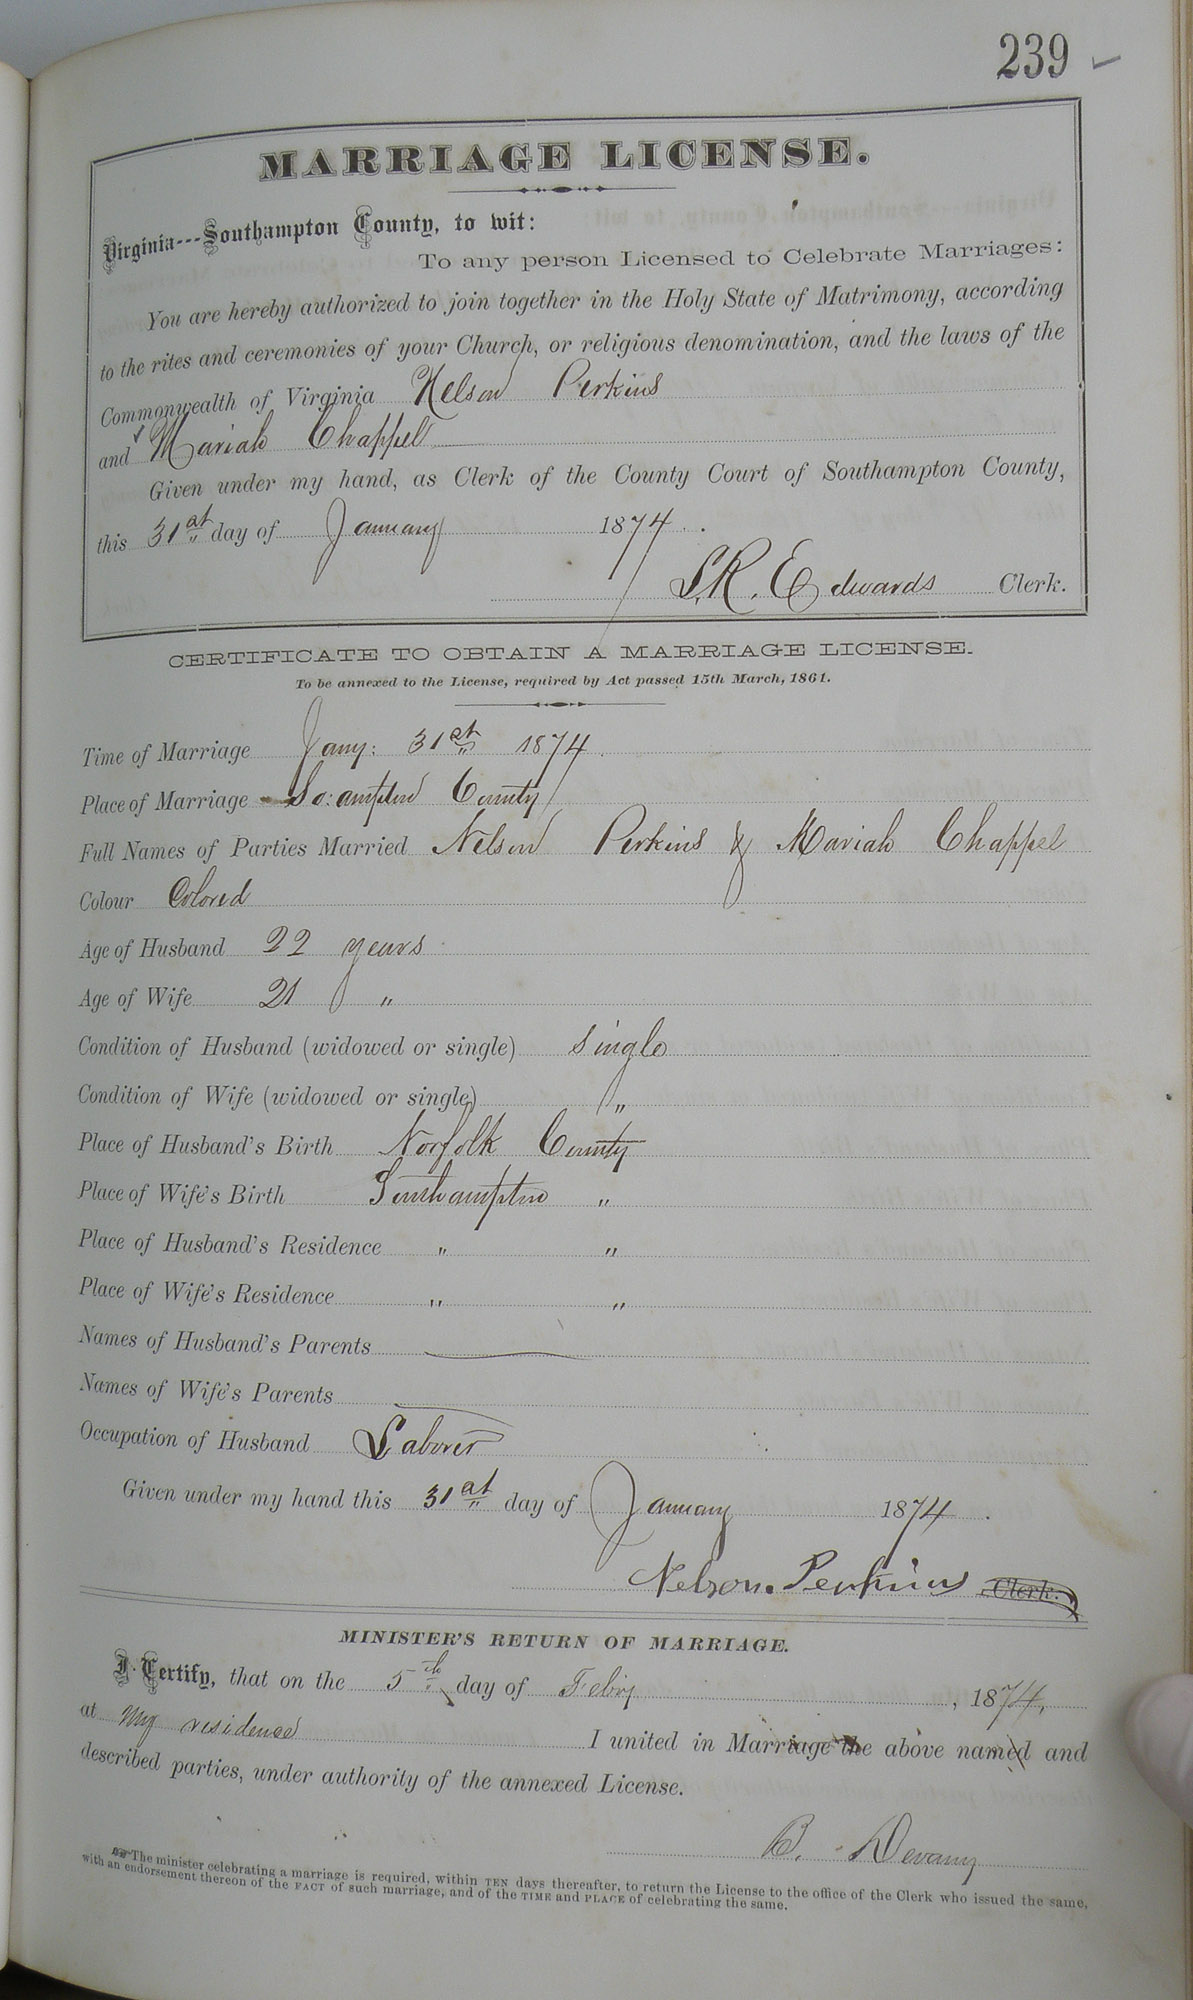 239
MARRIAGE LICENSE.
Virginia---Southampton County, to wit:
To any person Licensed to Celebrate Marriages:
You are hereby authorized to join together in the Holy State of Matrimony, according
to the rites and ceremonies of your Church, or religious denomination, and the laws of the
Commonwealth of Virginia Nelson Perkins
and Mariah Chappel
Given under my hand, as Clerk of the County Court of Southampton County,
this 31st day of January 1874.
L.R. Edwards Clerk.
CERTIFICATE TO OBTAIN A MARRIAGE LICENSE.
To be annexed to the License, required by Act passed 15th March, 1861.
Time of Marriage Jany: 31st 1874.
Place of Marriage So:ampton County
Full Names of Parties Married Nelson Perkins & Mariah Chappel
Colour Colored
Age of Husband 22 years
Age of Wife 21 "
Condition of Husband (widowed or single) single
Condition of Wife (widowed or single) "
Place of Husband's Birth Norfolk County
Place of Wife's Birth Southampton "
Place of Husband's Residence " "
Place of Wife's Residence " "
Names of Husband's Parents
Names of Wife's Parents
Occupation of Husband Laborer
Given under my hand this 31st day of January 1874.
Nelson. Perkins Clerk.
MINISTER'S RETURN OF MARRIAGE.
I Certify, that on the 5th day of Feby, 1874,
at my residence I united in Marriage the above named and
described parties, under authority of the annexed License.
B. Devany
The minister celebrating a marriage is required, within TEN days thereafter, to return the License to the office of the Clerk who issued the same,
with an endorsement thereon of the FACT of such marriage, and of the TIME and PLACE of celebrating the same.